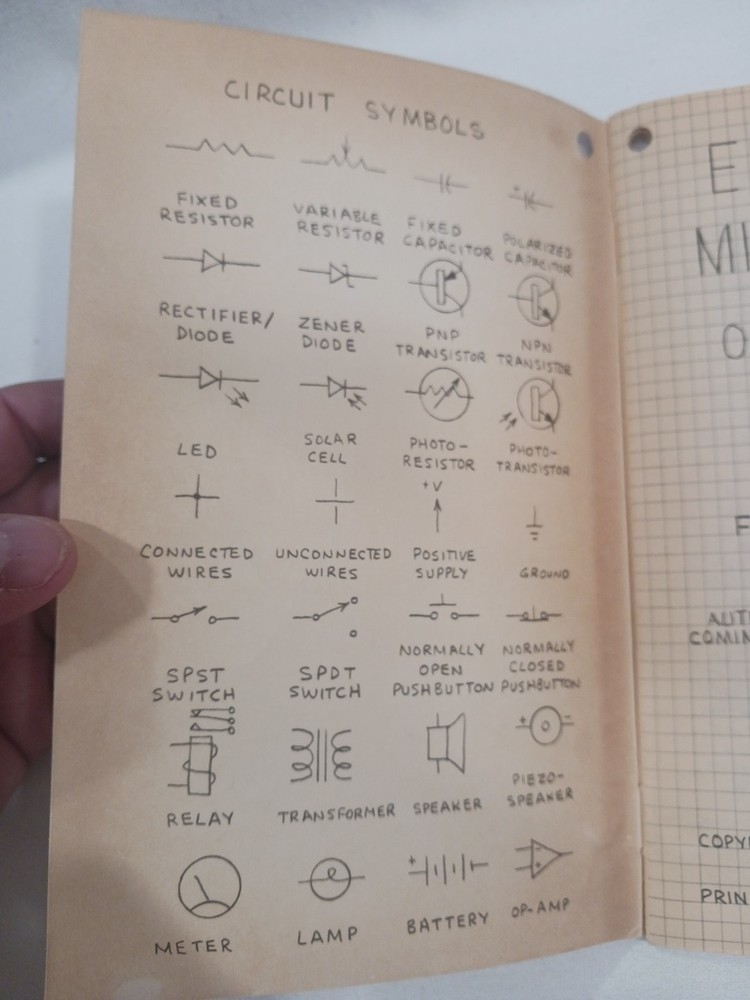 CIRCUIT SYMBOLS
FIXED
RESISTOR
VARIABLE
RESISTOR
FIXED
CAPACITOR
+
POLARIZED
CAPACITOR
RECTIFIER/
DIODE
ZENER
DIODE
PNP
TRANSISTOR
NPN
TRANSISTOR
LED
SOLAR
CELL
PHOTO-
RESISTOR
PHOTO-
TRANSISTOR
+V
CONNECTED
WIRES
UNCONNECTED
WIRES
POSITIVE
SUPPLY
GROUND
SPST
SWITCH
SPDT
SWITCH
NORMALLY
OPEN
PUSHBUTTON
NORMALLY
CLOSED
PUSHBUTTON
+ -
RELAY
TRANSFORMER
SPEAKER
PIEZO-
SPEAKER
+
METER
LAMP
BATTERY
OP-AMP
E
MI
O
F
AUT
COMIN
COPY
PRIN